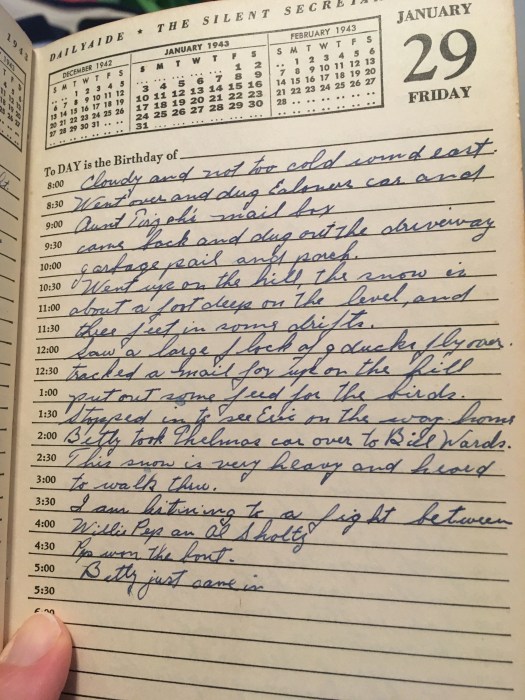 DAILYAIDE * THE SILENT SECRETA
JANUARY
29
FRIDAY
DECEMBER 1942
S M T W T F S
.. .. 1 2 3 4 5
6 7 8 9 10 11 12
13 14 15 16 17 18 19
20 21 22 23 24 25 26
27 28 29 30 31 .. ..
JANUARY 1943
S M T W T F S
.. .. .. .. .. 1 2
3 4 5 6 7 8 9
10 11 12 13 14 15 16
17 18 19 20 21 22 23
24 25 26 27 28 29 30
31 .. .. .. .. .. ..
FEBRUARY 1943
S M T W T F S
.. 1 2 3 4 5 6
7 8 9 10 11 12 13
14 15 16 17 18 19 20
21 22 23 24 25 26 27
28 .. .. .. .. .. ..
To DAY is the Birthday of
8:00 Cloudy and not too cold wind east.
8:30 Went over and dug car and
9:00 Aunt mail box
9:30 came back and dug out the driveway
10:00 garbage pail and porch.
10:30 Went up on the hill, the snow is
11:00 about a foot deep on the level, and
11:30 three feet in some drifts.
12:00 Saw a large flock of g ducks fly over.
12:30 tracked a small fox up on the hill
1:00 put out some feed for the birds.
1:30 stoped in to see Eric on the way home
2:00 Betty took Thelmas car over to Bill Wards.
2:30 This snow is very heavy and heard
3:00 to walk thru.
3:30 I am listining to a fight between
4:00 Willie Pep an Al Sholtz
4:30 Pep won the bout.
5:00 Betty just came in
5:30